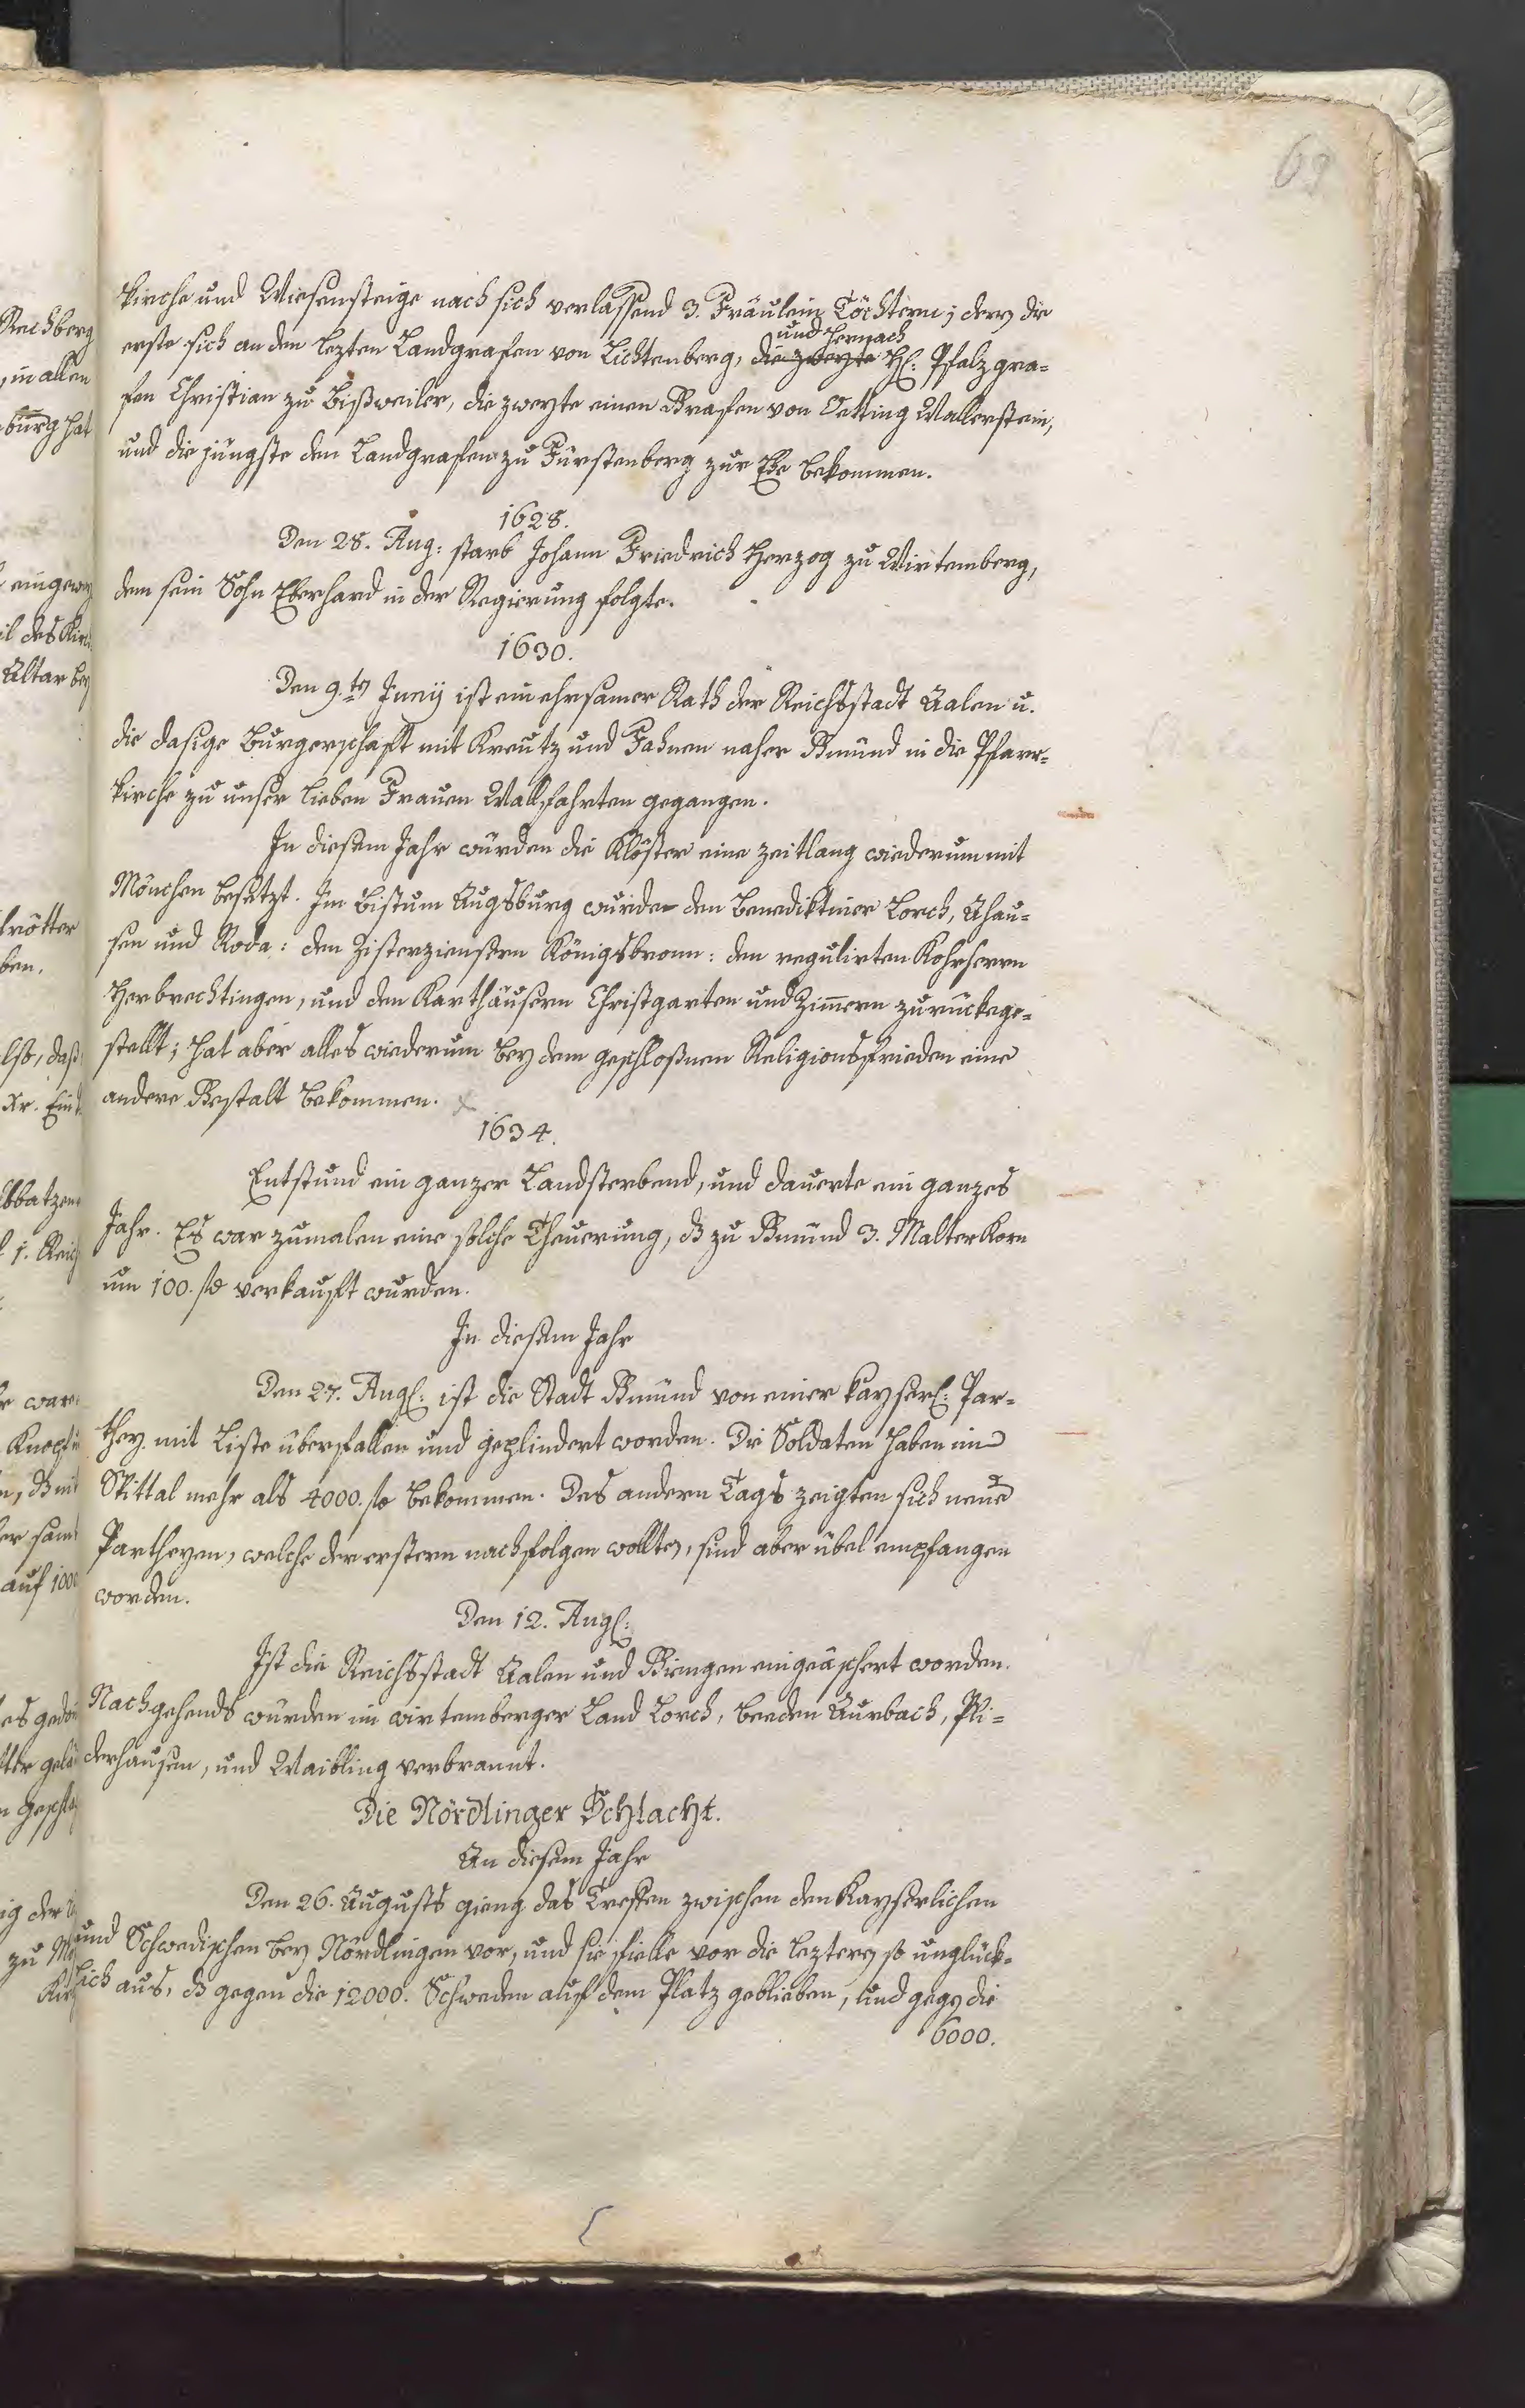 69
kirche und Wiesensteige nach sich verlassend 3. Fräulein Töchtern; dern die
und hernach
erste sich an den lezten Landgrafen von Lichtenberg, die zweyte H: Pfalzgra=
fen Christian zu Bißweiler, die zweyte einen Grafen von Oetting Wallerstein,
und die jüngste den Landgrafen zu Fürstenberg zur Ehe bekommen.
1628.
Den 28. Aug: starb Johann Friedrich Herzog zu Wirtemberg,
dem sein Sohn Eberhard in der Regierung folgte.
1630.
Den 9.ten Junij ist ein ehrsamer Rath der Reichsstadt Aalen u.
die dasige Burgerschaft mit Kreutz und Fahnen naher Gmünd in die Pfarr=
kirche zu unser lieben Frauen Wallfahrten gegangen.
In diesem Jahr wurden die Klöster eine zeitlang wiederum mit
Mönchen besetzt. Im Bistum Augsburg wurde den Benediktiner Lorch, Ahau=
sen und Roda: den Zisterziensern Königsbronn: den regulirten Kohrherrn
Herbrechtingen, und den Karthäusern Christgarten und Zimmern zurückege=
stellt; hat aber alles wiederum bey dem geschloßnen Religionsfrieden eine
andere Gestalt bekommen.
1634.
Entstund ein ganzer Landsterbend, und dauerte ein ganzes
Jahr. Es war zumalen eine solche Theurung, dß zu Gmünd 3. Malter Korn
um 100. fl verkauft wurden.
In diesem Jahr
Den 27. Aug: ist die Stadt Gmünd von einer kayserl: Par=
they mit Liste überfallen und geplindert worden. Die Soldaten haben im
Spittal mehr als 4000. fl bekommen. Des andern Tags zeigten sich neue
Partheyen, welche der erstern nachfolgen wollten, sind aber übel empfangen
worden.
Den 12. Aug:
Ist die Reichsstadt Aalen und Giengen eingeäschert worden.
Nachgehends wurden im wirtemberger Land Lorch, beeden Aurbach, Pli=
derhausen, und Waibling verbrannt.
Die Nördlinger Schlacht.
An diesem Jahr
Den 26. Augusts gieng das Treffen zwischen den Kayserlichen
und Schwedischen bey Nördlingen vor, und sie fielle vor die leztern so unglück=
lich aus, dß gegen die 12000. Schweden auf dem Platz geblieben, und gegen die
6000.